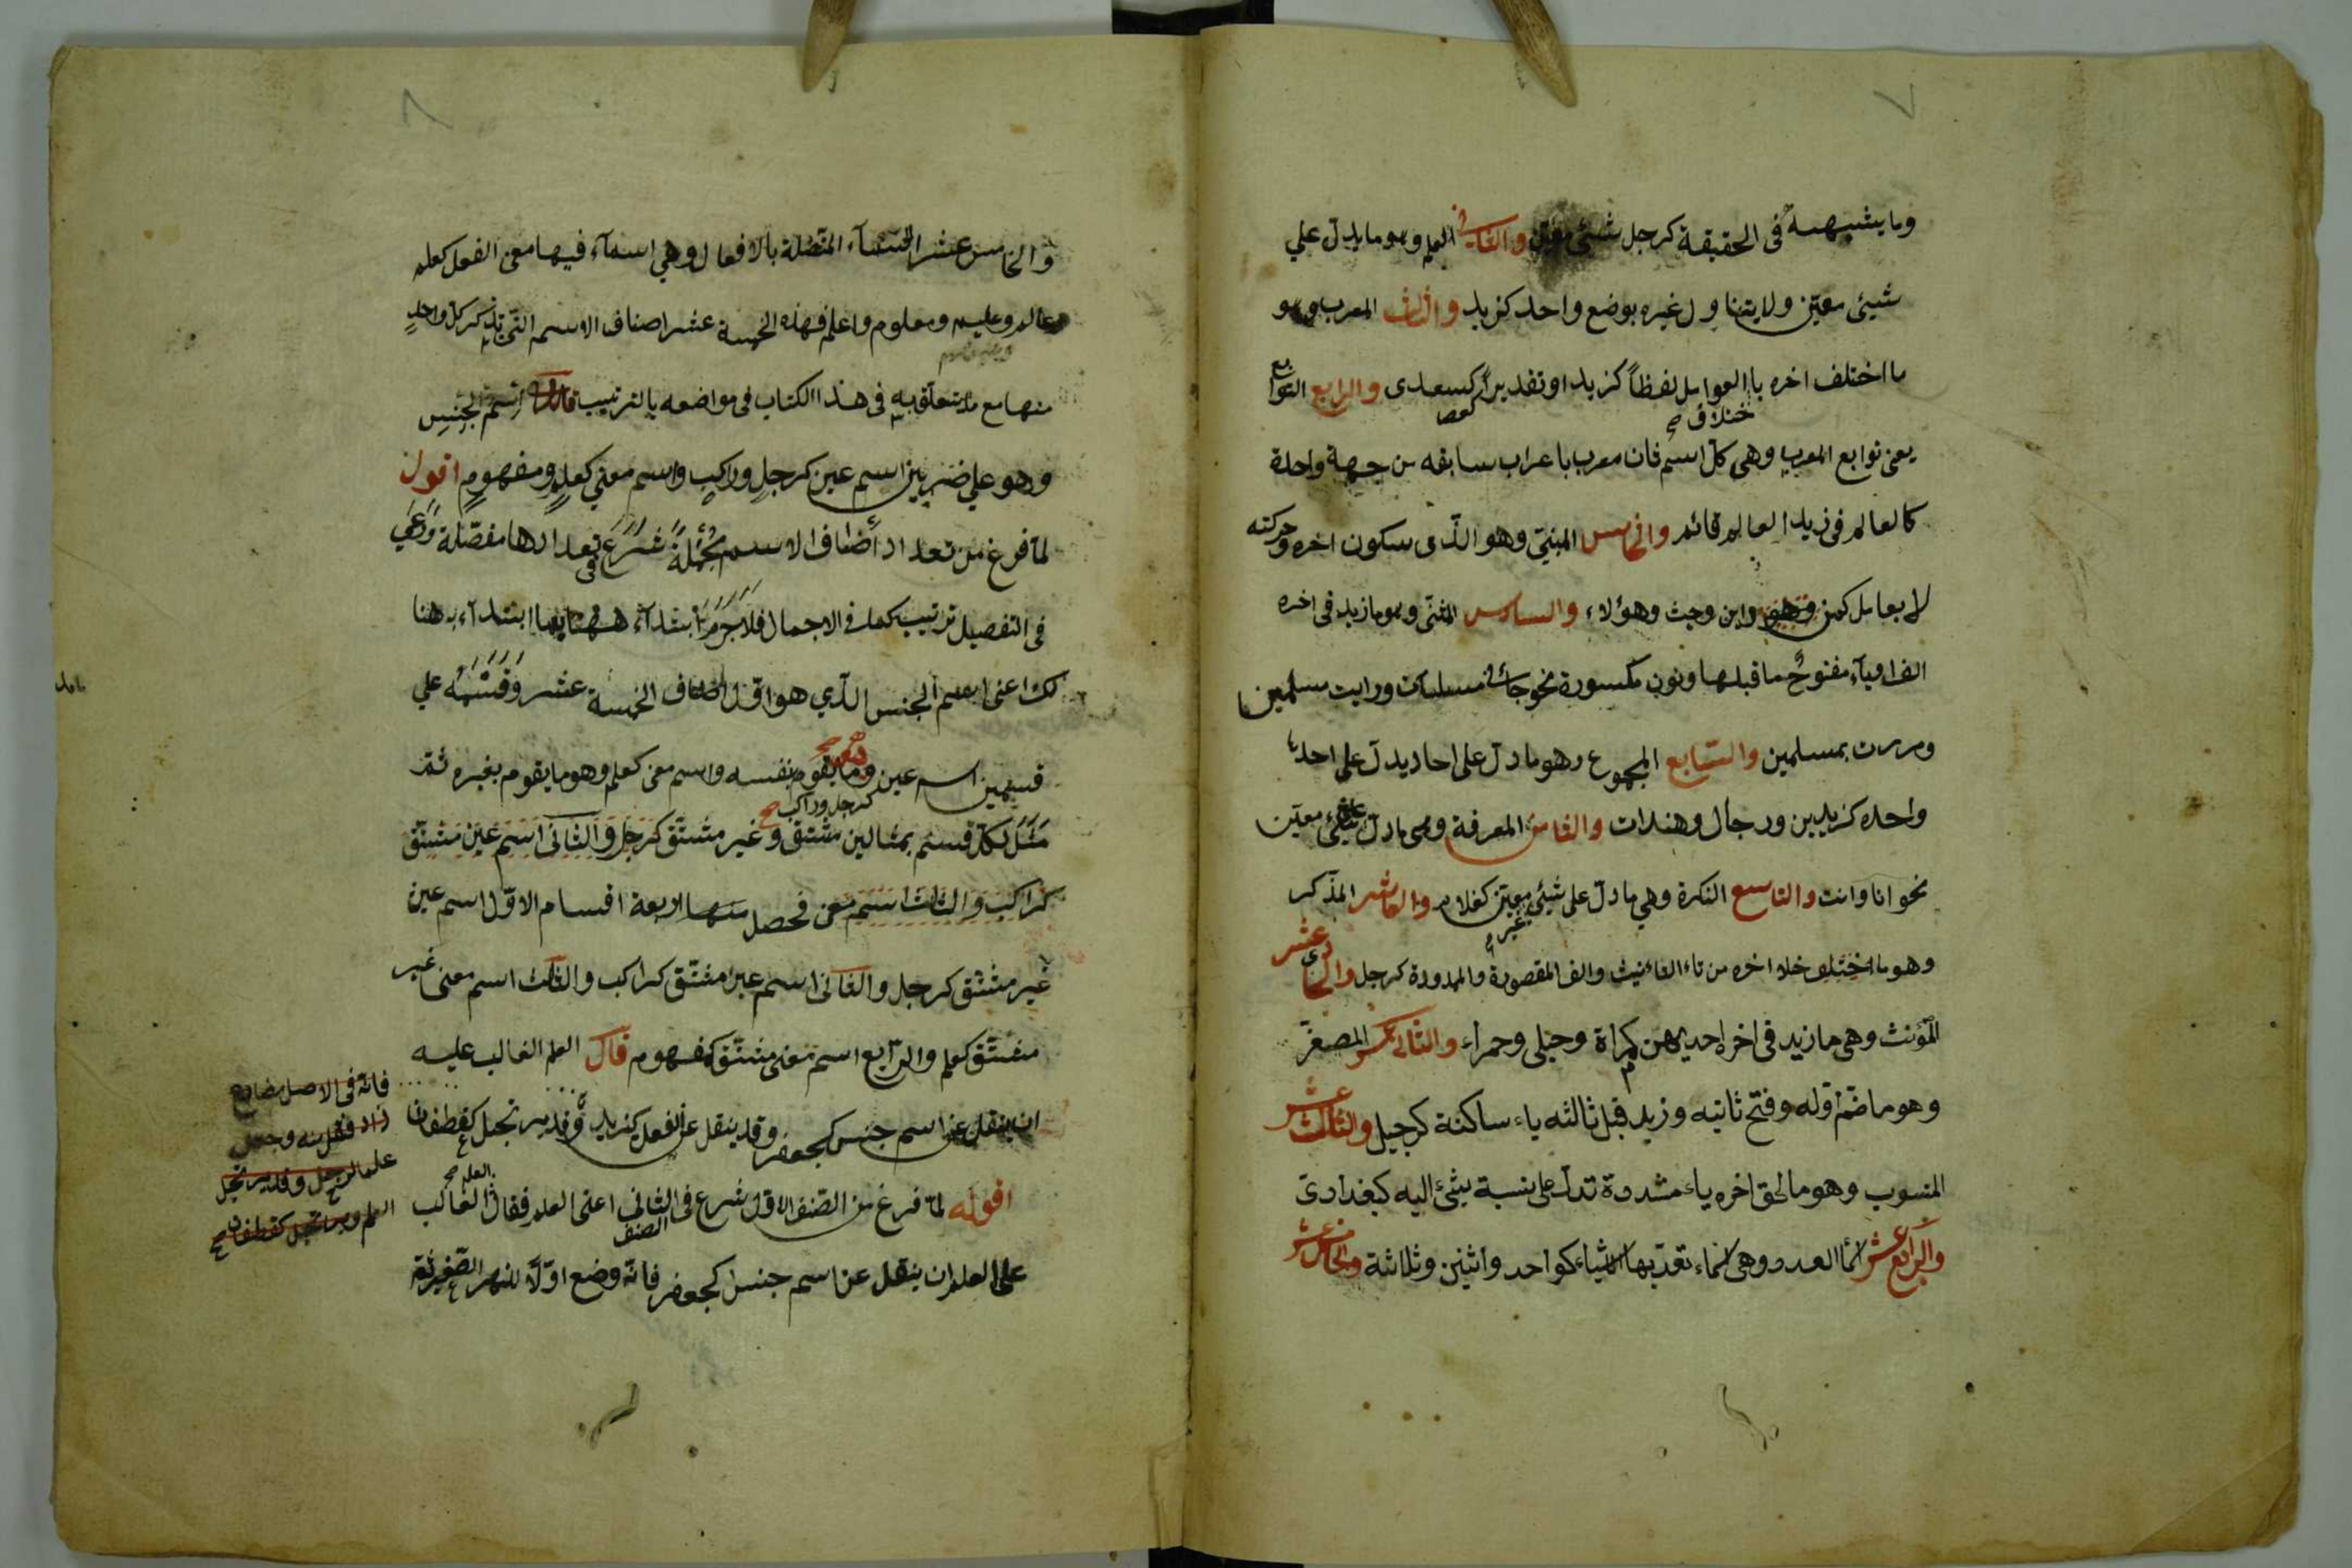 ٧
وما يشبهه فى الحقيقة كرجل شيئ معين والثانى العلم وهو ما يدل علي
شيئ معين ولا يتناول غيره بوضع واحد كزيد والثالث المعرب وهو
ما اختلف اخره با العوامل لفظاً كزيد او تقديراً كسعدى والرابع التوابع
ختلاف كعصا
يعنى توابع المعرب وهى كل اسم ثان معرب باعراب سابقه من جهة واحدة
كالعالم فى زيد العالم قائم والخامس المبنى وهو الذى سكون اخره وحركته
لا بعامل كمن واين وحيث وهؤلاء والسادس المثنى وهو ما زيد فى اخره
الف او ياء مفتوح ما قبلها ونون مكسورة نحو جائنى مسلمان ورايت مسلمين
ومررت بمسلمين والسابع المجموع وهو ما دل على احاد يدل على احد
واحده كزيدين ورجال وهندات والثامن المعرفة وهى ما دل على شئ معين
نحو انا وانت والتاسع النكرة وهي ما دل على شيئ غير معين كغلام والعاشر المذكر
وهو ما خلا اخره من تاء التانيث والف المقصورة والممدودة كرجل والحادى عشر
المؤنث وهى ما زيد فى اخره احديهن كمراة وحبلى وحمراء والثانى عشر المصغر
وهو ما ضم اوله وفتح ثانيه وزيد قبل ثالثه ياء ساكنة كرجيل والثالث عشر
المنسوب وهو ما لحق اخره ياء مشددة تدل على نسبة شئ اليه كبغدادى
والرابع عشر اسماء العدد وهى اسماء تعد بها الاشياء كواحد واثنين وثلاثة والخامس عشر
٨
والخامس عشر الاسماء المتصلة بالافعال وهي اسماء فيها معنى الفعل كعلم
وعالم وعليم ومعلوم واعلم فهذه الخمسة عشر اصناف الاسم التى نذكر كل واحد
منها مع ما يتعلق به فى هذا الكتاب فى مواضعه بالترتيب قال اسم الجنس
وهو علي ضربين اسم عين كرجل وراكب واسم معنى كعلم ومفهوم اقول
لما فرغ من تعداد أصناف الاسم مجملة شرع فى تعدادها مفصلة ورعي
فى التفصيل ترتيب كما فى الاجمال فلا جرم ابتداء ههنا بما ابتداء به هنا
لك اعنى اسم الجنس الذي هو اول اصناف الخمسة عشر وقسمه علي
قسمين اسم عين وهو ما يقوم بنفسه واسم معنى كعلم وهو ما يقوم بغيره ثم
كرجل وراكب صح
مثل لكل قسم بمثالين مشتق وغير مشتق كرجل والثانى اسم عين مشتق
كراكب والثالث اسم معنى فحصل منها اربعة اقسام الاول اسم عين
غير مشتق كرجل والثانى اسم عين مشتق كراكب والثالث اسم معنى غير
مشتق كعلم والرابع اسم معنى مشتق كمفهوم قال العلم الغالب عليه
ان ينقل عن اسم جنس كجعفر وقد ينقل عن الفعل كيزيد وقد يرتجل كغطفان
اقوله لما فرغ من الصنف الاول شرع فى الصنف الثانى اعنى العلم فقال الغالب
على العلم ان ينقل عن اسم جنس كجعفر فانه وضع اولا للنهر الصغير ثم
فانه فى الاصل مضارع
زاد فنقل منه وجعل
علما لرجل وقد يرتجل
العلم كغطفان